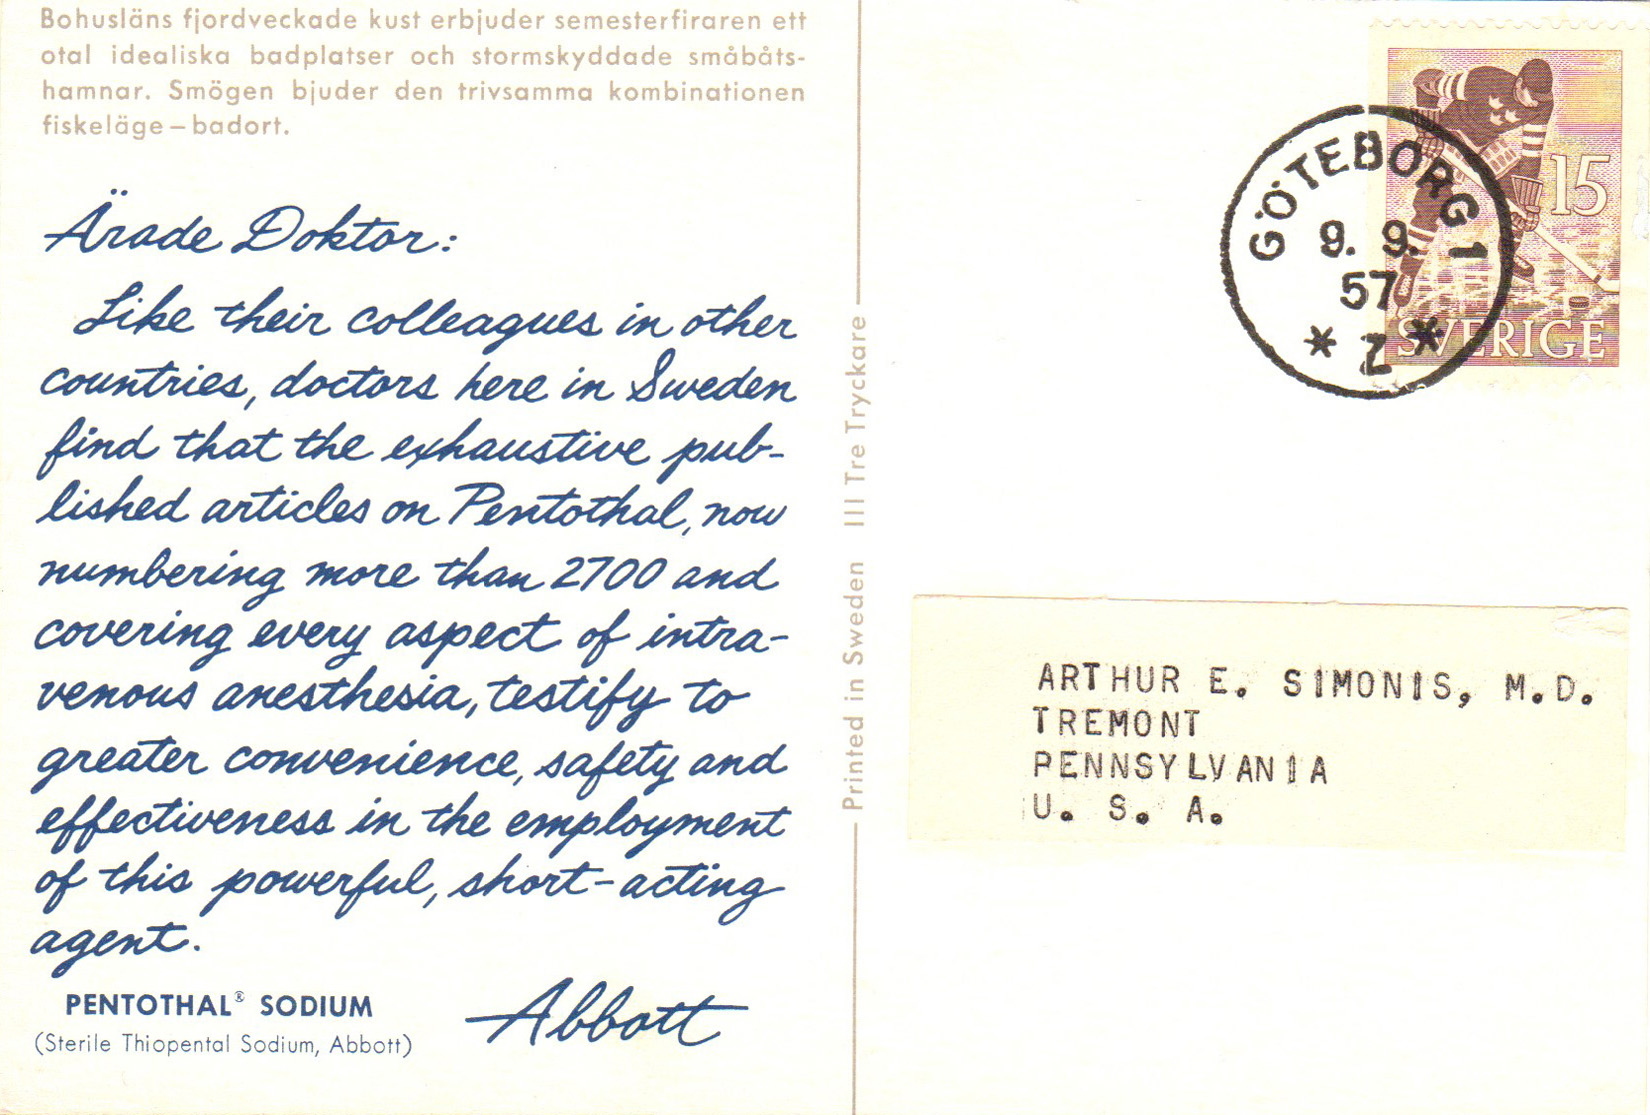 Bohusläns fjordveckade kust erbjuder semesterfiraren ett
otal idealiska badplatser och stormskyddade småbåts-
hamnar. Smögen bjuder den trivsamma kombinationen
fiskeläge – badort.
Ärade Doktor:
Like their colleagues in other
countries, doctors here in Sweden
find that the exhaustive pub-
lished articles on Pentothal, now
numbering more than 2700 and
covering every aspect of intra-
venous anesthesia, testify to
greater convenience, safety and
effectiveness in the employment
of this powerful, short-acting
agent.
PENTOTHAL® SODIUM
(Sterile Thiopental Sodium, Abbott)
Abbott
Printed in Sweden III Tre Tryckare
15
SVERIGE
GÖTEBORG 1
9. 9.
57
* Z *
ARTHUR E. SIMONIS, M.D.
TREMONT
PENNSYLVANIA
U. S. A.